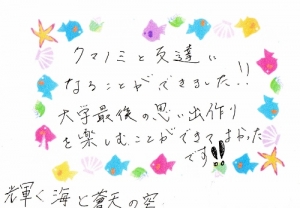 クマノミと友達に
なることができました!!
大学最後の思い出作り
を楽しむことができてよかった
です!!
輝く海と蒼天の空